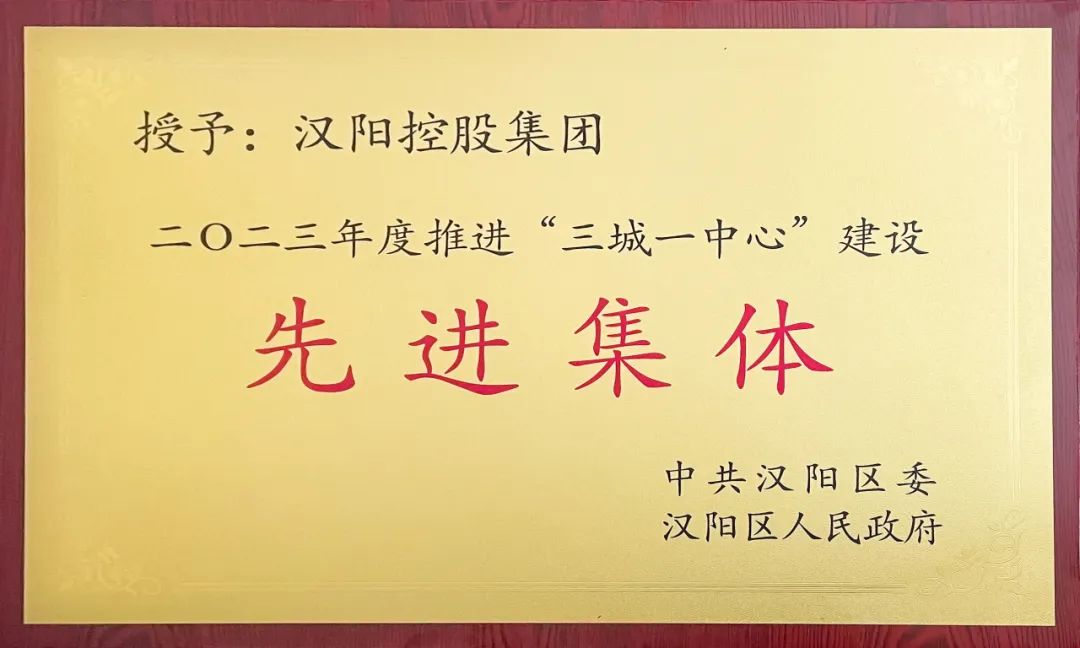 授予：汉阳控股集团
二〇二三年度推进“三城一中心”建设
先进集体
中共汉阳区委
汉阳区人民政府